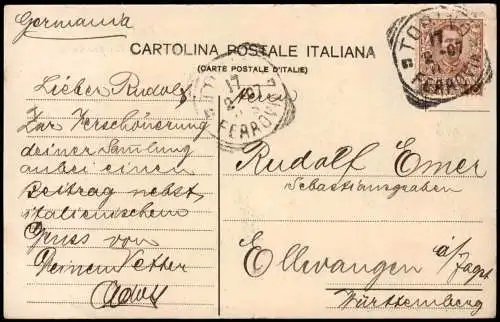 Germania
CARTOLINA POSTALE ITALIANA
(CARTE POSTALE D'ITALIE)
TORINO
17
2-07
FERROVIA
TORINO
17
2-07
FERROVIA
Lieber Rudolf,
Zur Verschönerung
deiner Samlung
anbei einen
Beitrag nebst
italienischem
Gruss von
Deinem Vetter
Adolf
Herrn
Rudolf Emer
Sebastiansgraben
Ellwangen a/Jagst
Württemberg